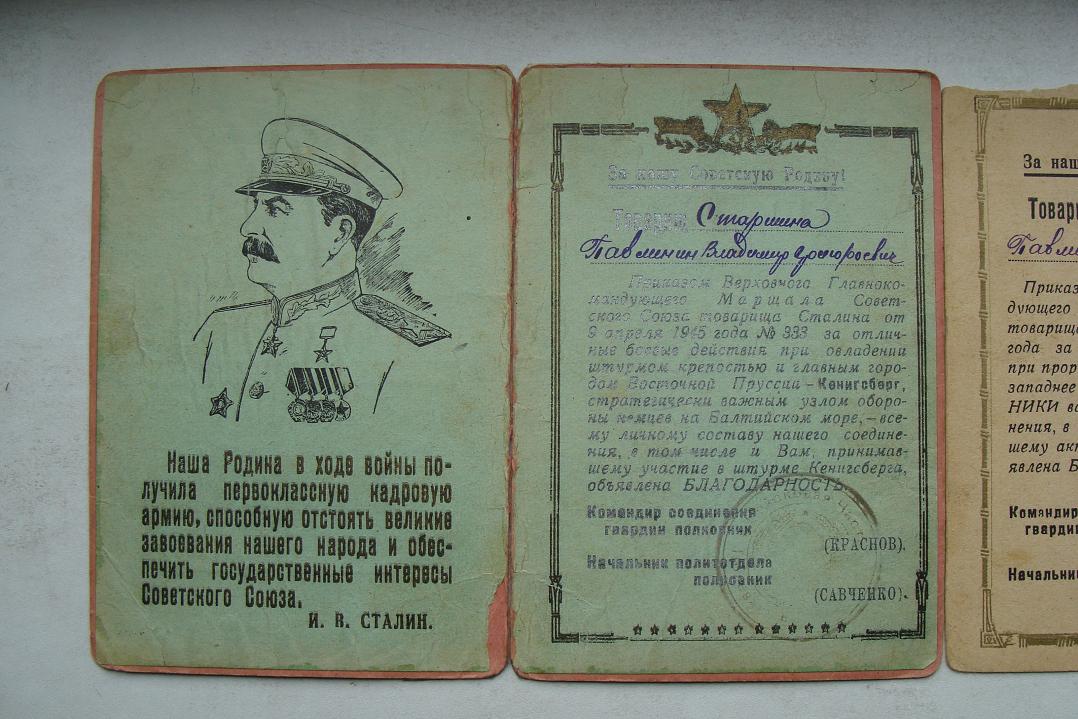 Наша Родина в ходе войны по-
лучила первоклассную кадровую
армию, способную отстоять великие
завоевания нашего народа и обес-
печить государственные интересы
Советского Союза.
И. В. СТАЛИН.
За нашу Советскую Родину!
Товарищ Старшина
Павлинин Владимир Григорьевич
Приказом Верховного Главноко-
мандующего Маршала Совет-
ского Союза товарища Сталина от
9 апреля 1945 года № 333 за отлич-
ные боевые действия при овладении
штурмом крепостью и главным горо-
дом Восточной Пруссии – Кенигсберг,
стратегически важным узлом оборо-
ны немцев на Балтийском море, – все-
му личному составу нашего соедине-
ния, в том числе и Вам, принимав-
шему участие в штурме Кенигсберга,
объявлена БЛАГОДАРНОСТЬ.
Командир соединения
гвардии полковник
(КРАСНОВ).
Начальник политотдела
полковник
(САВЧЕНКО).
За наш
Товари
Павли
Приказ
дующего
товарища
года за
при прор
западнее
НИКИ ва
нения, в
шему акт
явлена Б
Командир
гварди
Начальник